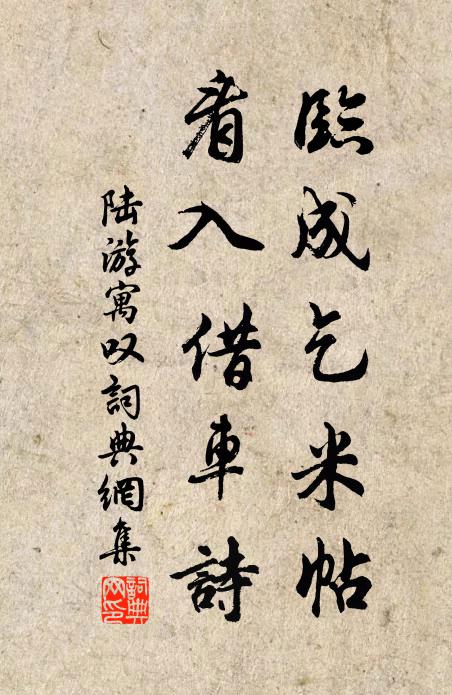 臨成乞米帖
看入借車詩
陆游寓叹詞典網集
詞典网印